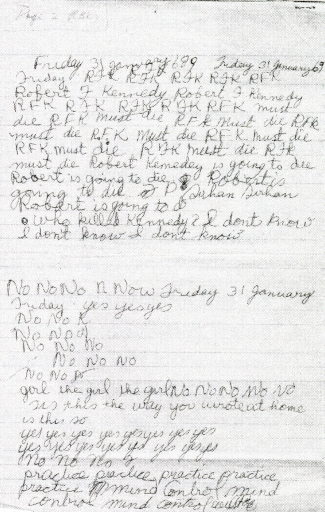 Page 2
Friday 31 January 69 Friday 31 January 69
Friday RFK RFK RFK RFK RFK
Robert F Kennedy Robert F Kennedy
RFK RFK RFK RFK RFK must
die RFK must die RFK must die RFK
must die RFK must die RFK must die
RFK must die RFK must die RFK
must die Robert Kennedy is going to die
Robert is going to die Robert is
going to die D Sirhan Sirhan
Robert is going to d
Who killed Kennedy? I dont know
I dont know I dont know
No No No n Now Friday 31 January
Friday yes yes yes
No No
No No
No No No
No No No
No No
girl the girl the girl No No No No No
is this the way you wrote at home
is this so
yes yes yes yes yes yes yes yes
yes yes yes yes yes yes yes
No No No
practice practice practice practice
practice mind control mind
control mind control